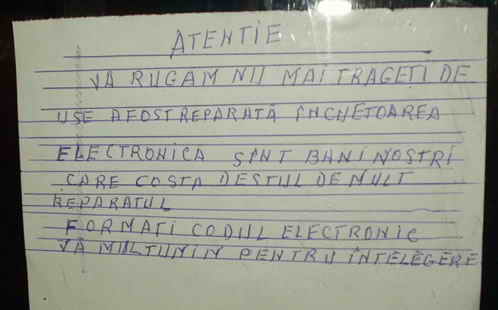 ATENTIE
VĂ RUGAM NU MAI TRAGETI DE
USE AFOST REPARATĂ INCUETOAREA
ELECTRONICA SINT BANI NOSTRI
CARE COSTA DESTUL DE MULT
REPARATUL
FORMATI CODUL ELECTRONIC
VĂ MULTUMIM PENTRU INTELEGERE